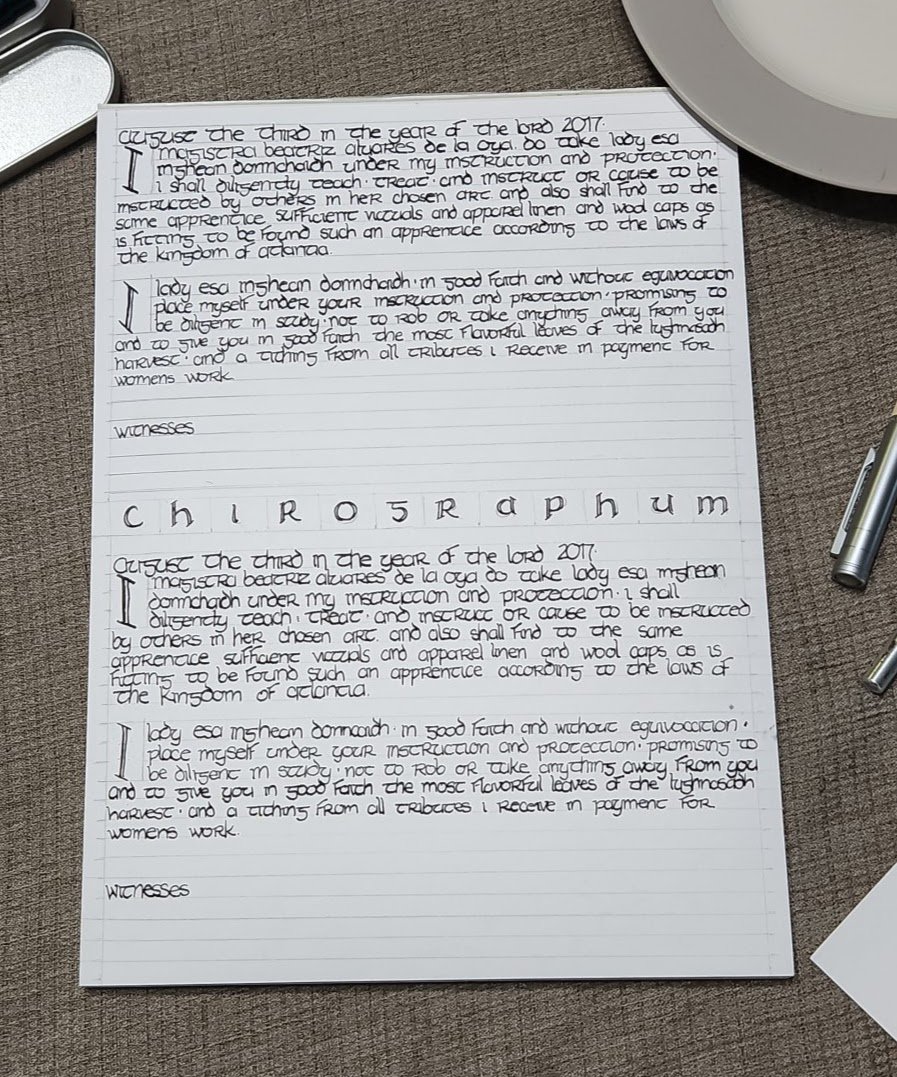 august the third in the year of the lord 2017.
I magistra beatriz aluares de la oya. do take lady esa
inghean donnchaidh under my instruction and protection.
i shall diligently teach. treat. and instruct or cause to be
instructed by others in her chosen art. and also shall find to the
same apprentice sufficient victuals and apparel linen and wool caps as
is fitting to be found such an apprentice according to the laws of
the kingdom of atlantia.
I lady esa inghean donnchaidh. in good faith and without equivocation
place myself under your instruction and protection. promising to
be diligent in study. not to rob or take anything away from you
and to give you in good faith the most flavorful leaves of the lughnasadh
harvest. and a tithing from all tributes i receive in payment for
womens work.
witnesses
chirographum
august the third in the year of the lord 2017.
I magistra beatriz aluares de la oya do take lady esa inghean
donnchaidh under my instruction and protection. i shall
diligently teach. treat. and instruct or cause to be instructed
by others in her chosen art. and also shall find to the same
apprentice sufficient victuals and apparel linen and wool caps as is
fitting to be found such an apprentice according to the laws of
the kingdom of atlantia.
I lady esa inghean donncaidh. in good faith and without equivocation.
place myself under your instruction and protection. promising to
be diligent in study. not to rob or take anything away from you
and to give you in good faith the most flavorful leaves of the lughnasadh
harvest. and a tithing from all tributes i receive in payment for
womens work.
witnesses